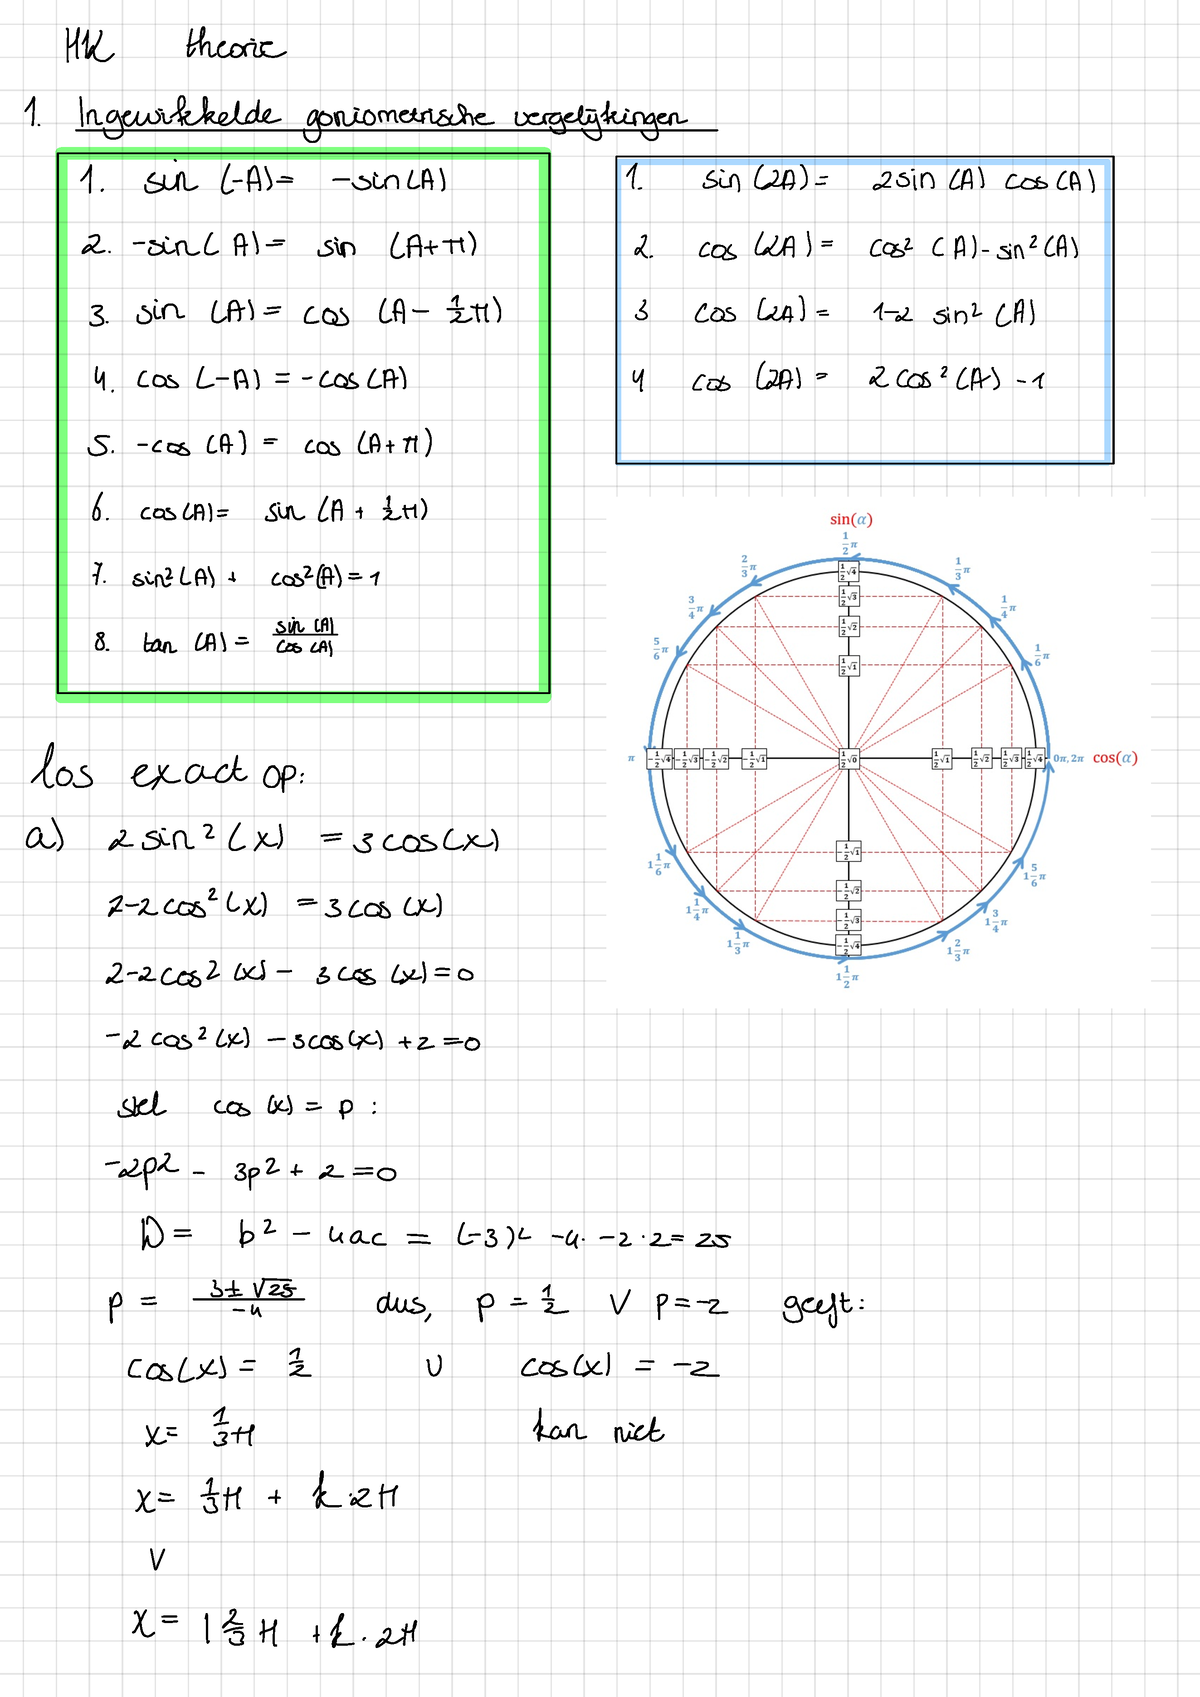 HK theorie
1. Ingewikkelde goniometrische vergelijkingen
1. sin (-A) = -sin (A)
2. -sin (A) = sin (A+π)
3. sin (A) = cos (A - 1/2 π)
4. cos (-A) = -cos (A)
5. -cos (A) = cos (A+π)
6. cos (A) = sin (A + 1/2 π)
7. sin² (A) + cos² (A) = 1
8. tan (A) = sin (A) / cos (A)
1. sin (2A) = 2 sin (A) cos (A)
2. cos (2A) = cos² (A) - sin² (A)
3 cos (2A) = 1-2 sin² (A)
4 cos (2A) = 2 cos² (A) - 1
sin(α)
1/2 π
2/3 π 1/3 π
3/4 π 1/4 π
5/6 π 1/6 π
1/2 √4
1/2 √3
1/2 √2
1/2 √1
π -1/2 √4 -1/2 √3 -1/2 √2 -1/2 √1 1/2 √0 1/2 √1 1/2 √2 1/2 √3 1/2 √4 0π, 2π cos(α)
-1/2 √1
-1/2 √2
-1/2 √3
-1/2 √4
1 1/6 π 1 5/6 π
1 1/4 π 1 3/4 π
1 1/3 π 1 2/3 π
1 1/2 π
los exact op:
a) 2 sin² (x) = 3 cos (x)
2-2 cos² (x) = 3 cos (x)
2-2 cos² (x) - 3 cos (x) = 0
-2 cos² (x) - 3 cos (x) + 2 = 0
stel cos (x) = p :
-2p² - 3p² + 2 = 0
D = b² - 4ac = (-3)² - 4 · -2 · 2 = 25
p = 3 ± √25 / -4 dus, p = 1/2 V p = -2 geeft:
cos (x) = 1/2 V cos (x) = -2
x = 1/3 π kan niet
x = 1/3 π + k · 2π
V
x = 1 2/3 π + k · 2π